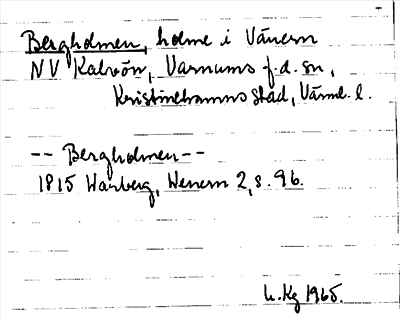 Bergholmen, holme i Vänern
NV Kalvön, Varnums f.d. sn,
Kristinehamns stad, Värml. l.
-- Bergholmen --
1815 Warberg, Wenern 2, s. 96.
h. Kg 1965.